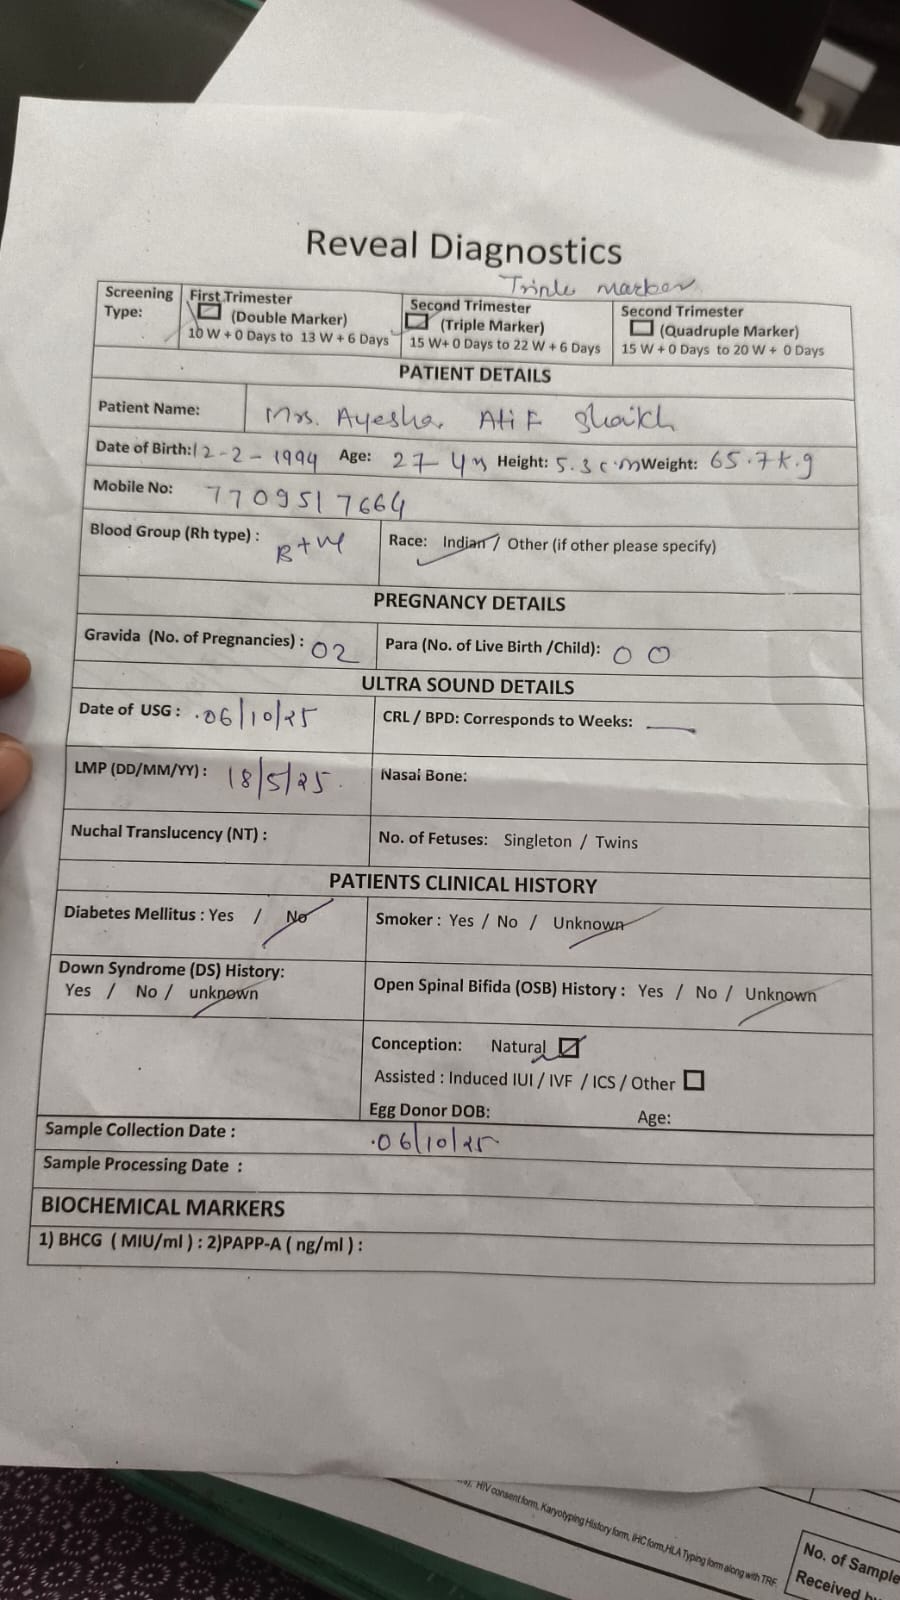 Reveal Diagnostics
Triple marker
Screening Type: First Trimester (Double Marker) 10 W + 0 Days to 13 W + 6 Days
Second Trimester (Triple Marker) 15 W+ 0 Days to 22 W + 6 Days
Second Trimester (Quadruple Marker) 15 W + 0 Days to 20 W + 0 Days
PATIENT DETAILS
Patient Name: Mrs. Ayesha Atif Shaikh
Date of Birth: 12-2-1994 Age: 27 yrs Height: 5.3 cm Weight: 65.7 k.g
Mobile No: 7709517664
Blood Group (Rh type) : B+ve Race: Indian / Other (if other please specify)
PREGNANCY DETAILS
Gravida (No. of Pregnancies) : 02 Para (No. of Live Birth /Child): 0 0
ULTRA SOUND DETAILS
Date of USG : 06/10/25 CRL / BPD: Corresponds to Weeks: —
LMP (DD/MM/YY) : 18/5/25. Nasal Bone:
Nuchal Translucency (NT) : No. of Fetuses: Singleton / Twins
PATIENTS CLINICAL HISTORY
Diabetes Mellitus : Yes / No Smoker : Yes / No / Unknown
Down Syndrome (DS) History: Yes / No / unknown Open Spinal Bifida (OSB) History : Yes / No / Unknown
Conception: Natural
Assisted : Induced IUI / IVF / ICS / Other
Egg Donor DOB: Age:
Sample Collection Date : 06/10/25
Sample Processing Date :
BIOCHEMICAL MARKERS
1) BHCG ( MIU/ml ) : 2)PAPP-A ( ng/ml ) :
HIV consent form, Karyotyping History form, IHC form, HLA Typing form along with TRF
No. of Sample
Received